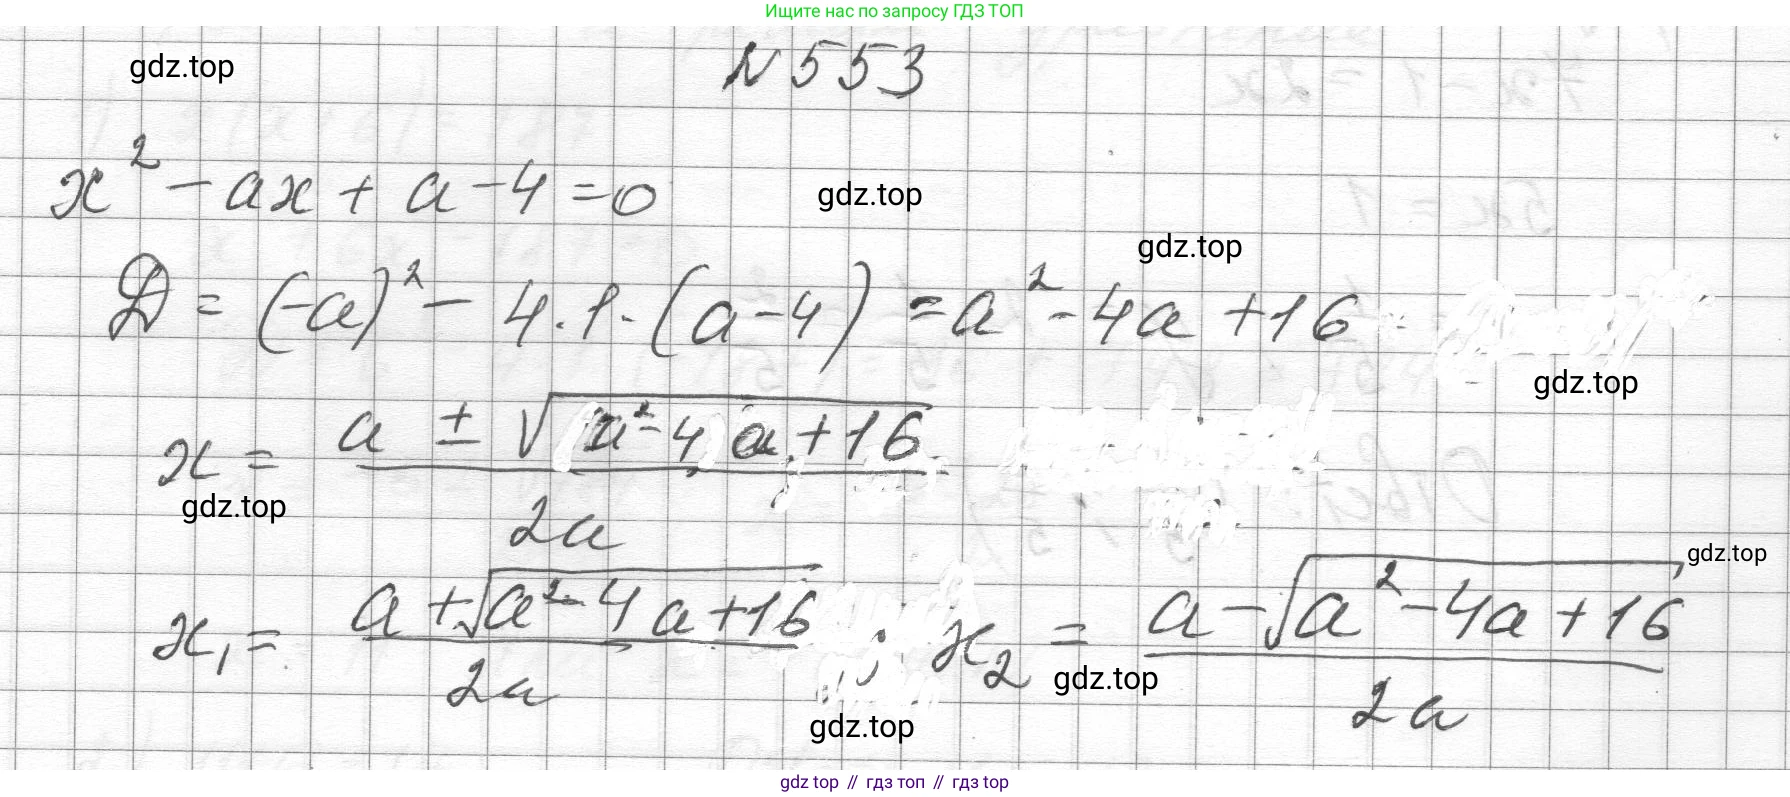 Ищите нас по запросу ГДЗ ТОП
gdz.top
N 553
x² - ax + a - 4 = 0
gdz.top
gdz.top
D = (-a)² - 4 · 1 · (a - 4) = a² - 4a + 16
gdz.top
x = (a ± √(a² - 4a + 16)) / 2a
gdz.top
gdz.top
x₁ = (a + √(a² - 4a + 16)) / 2a ; x₂ = (a - √(a² - 4a + 16)) / 2a
gdz.top
gdz.top
gdz top // гдз топ // гдз top